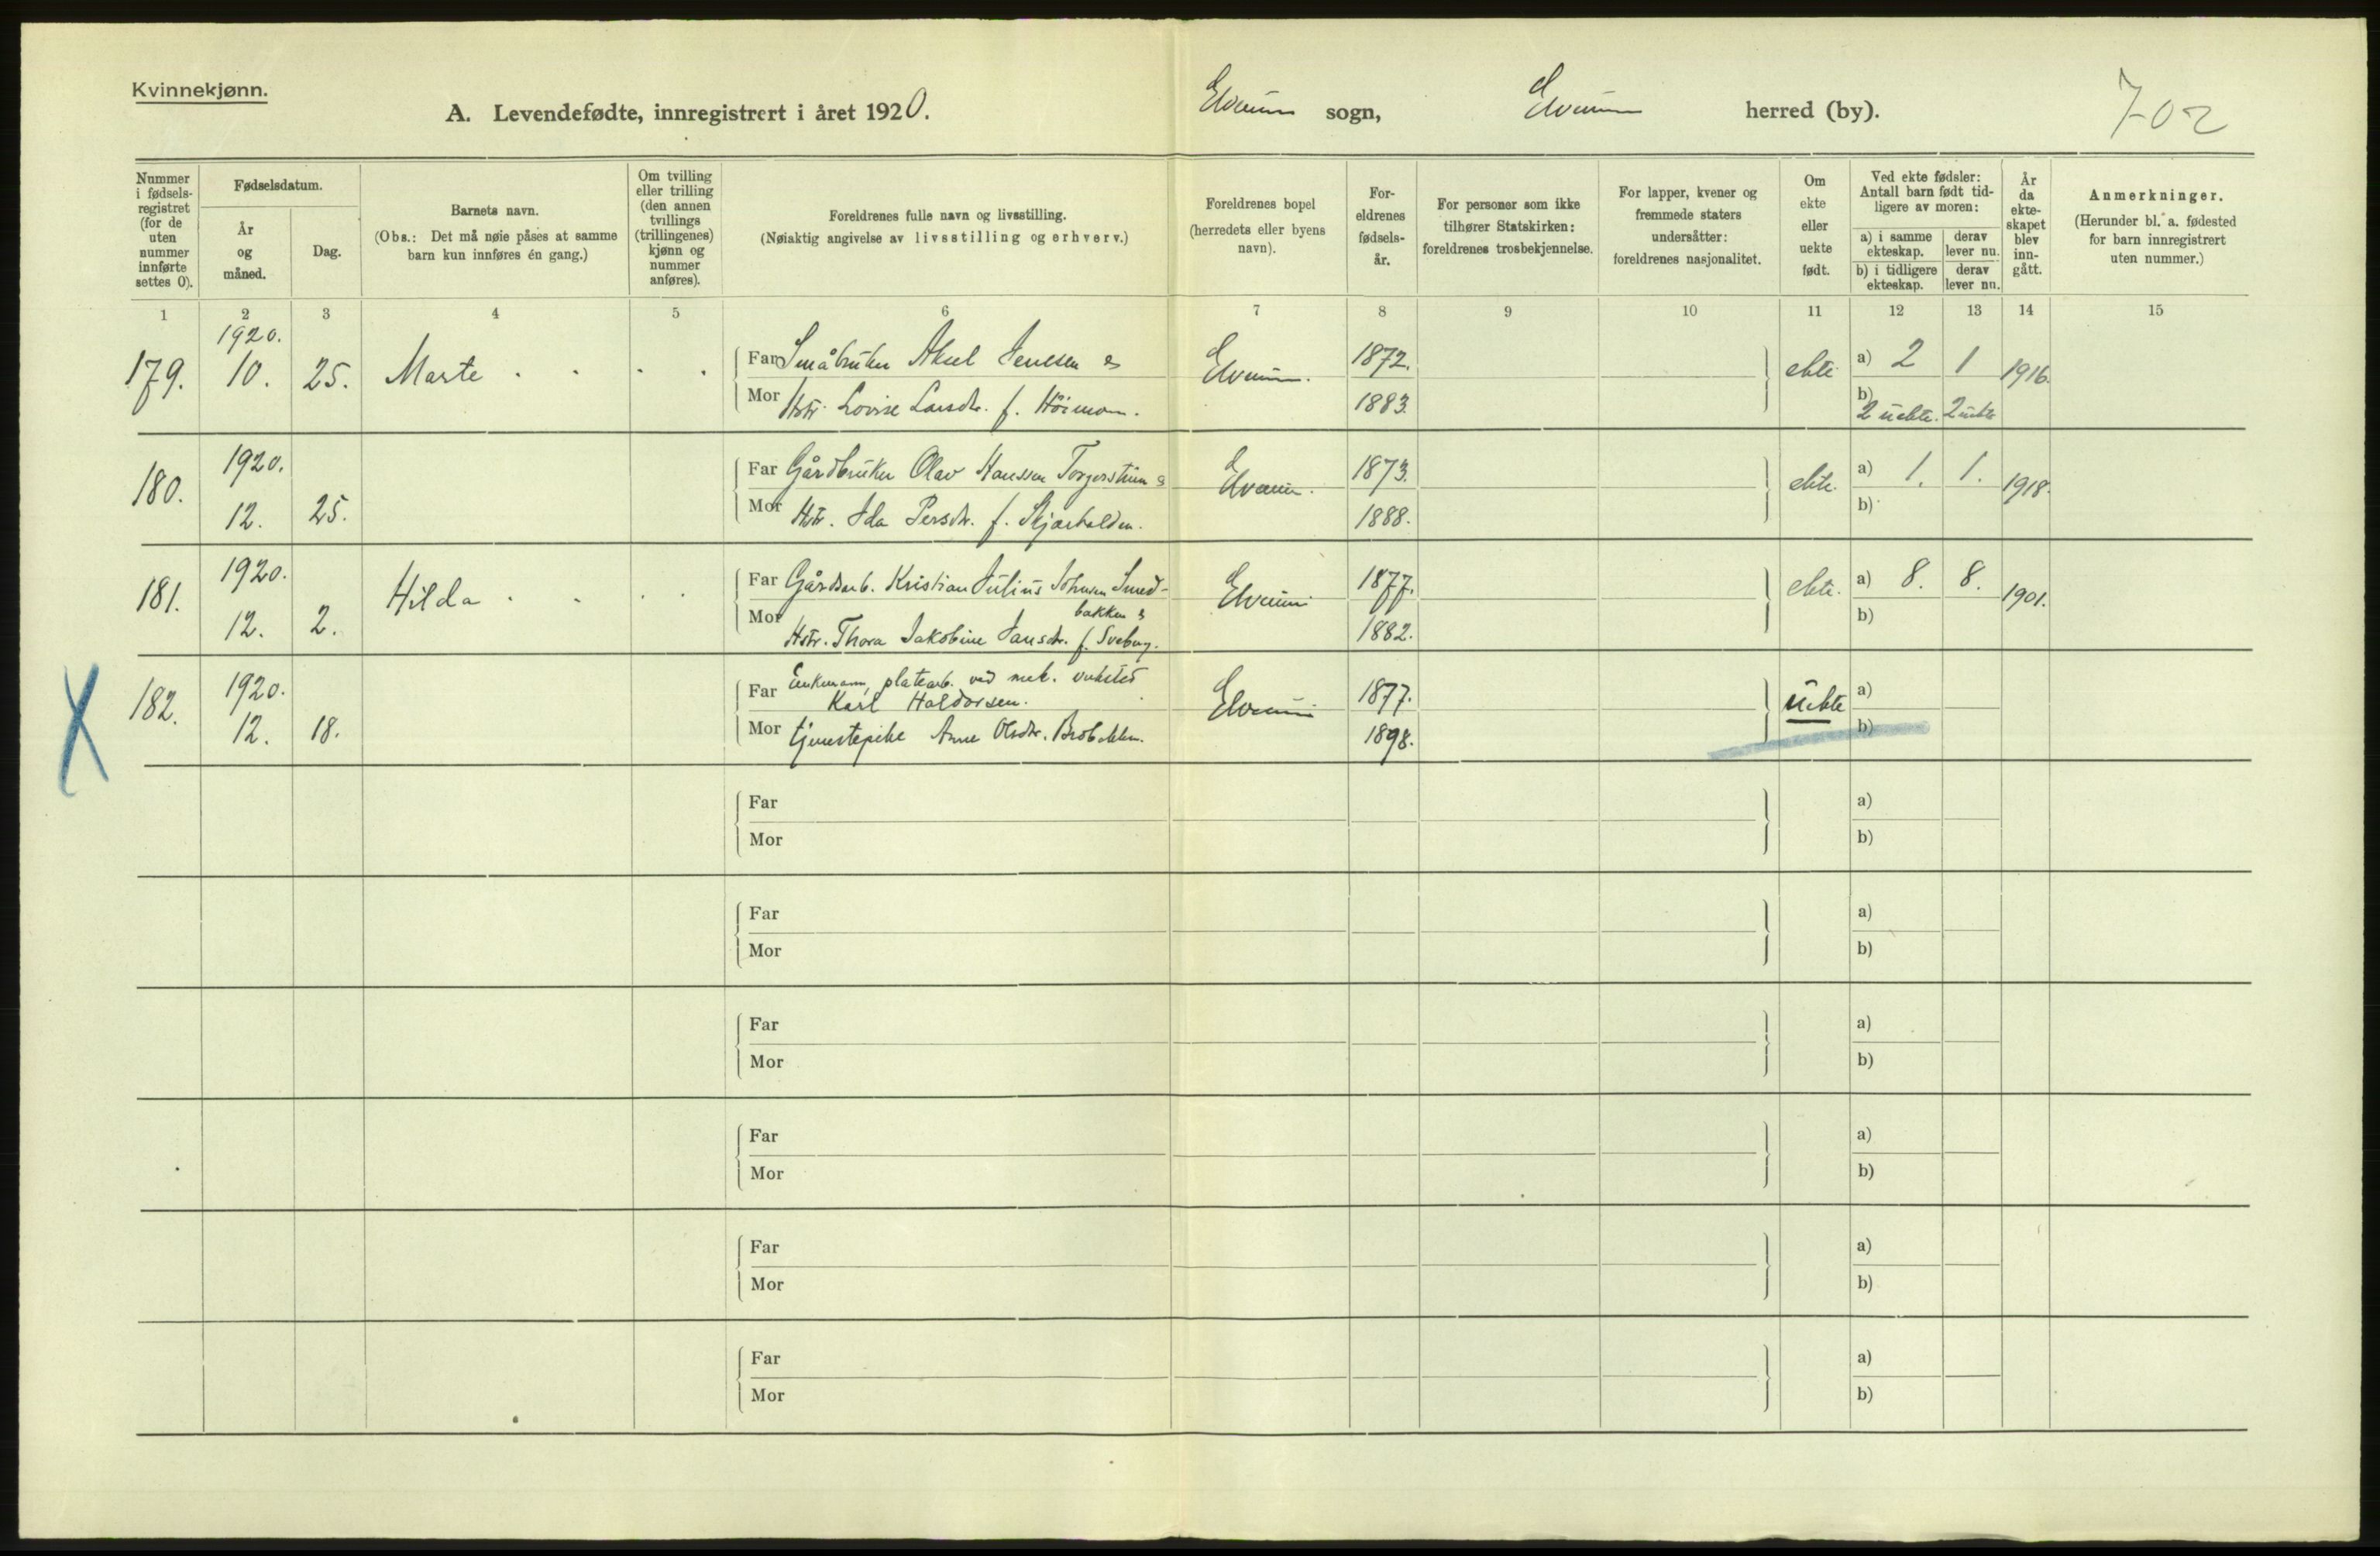 Kvinnekjønn.
A. Levendefødte, innregistrert i året 1920.
Elverum sogn, Elverum herred (by).
702
Nummer i fødsels-registret (for de uten nummer innførte settes 0).
Fødselsdatum.
År og måned.
Dag.
Barnets navn.
(Obs.: Det må nøie påses at samme barn kun innføres én gang.)
Om tvilling eller trilling (den annen tvillings (trillingenes) kjønn og nummer anføres).
Foreldrenes fulle navn og livsstilling.
(Nøiaktig angivelse av livsstilling og erhverv.)
Foreldrenes bopel (herredets eller byens navn).
For-eldrenes fødsels-år.
For personer som ikke tilhører Statskirken: foreldrenes trosbekjennelse.
For lapper, kvener og fremmede staters undersåtter: foreldrenes nasjonalitet.
Om ekte eller uekte født.
Ved ekte fødsler: Antall barn født tid-ligere av moren:
a) i samme ekteskap. derav lever nu.
b) i tidligere ekteskap. derav lever nu.
År da ekte-skapet blev inn-gått.
Anmerkninger.
(Herunder bl. a. fødested for barn innregistrert uten nummer.)
1 2 3 4 5 6 7 8 9 10 11 12 13 14 15
179. 1920. 10. 25. Marte
Far Småbruker Aksel Jensen &
Elverum. 1872. ekte a) 2 1 1916.
Mor Hstr. Lovise Larsdtr. f. 1883. b) 2 uekte. 2 uekte
180. 1920. 12. 25.
Far Gårdbruker Olav Hanssen Torgerstuen &
Elverum. 1873. ekte. a) 1. 1. 1918.
Mor Hstr. Ida Persdtr. f. 1888. b)
181. 1920. 12. 2. Hilda
Far Gårdsarb. Kristian Julius Johnsen Smed-
bakken &
Elverum 1877. ekte. a) 8. 8. 1901.
Mor Hstr. Thora Jakobine Jansdtr. f. Sveberg. 1882. b)
182. 1920. 12. 18.
Far Enkemann, platearb. ved mek. verksted
Karl Haldorsen.
Elverum 1877. uekte a)
Mor tjenestepike Anne Olsdtr. 1898. b)
Far a)
Mor b)
Far a)
Mor b)
Far a)
Mor b)
Far a)
Mor b)
Far a)
Mor b)
Far a)
Mor b)